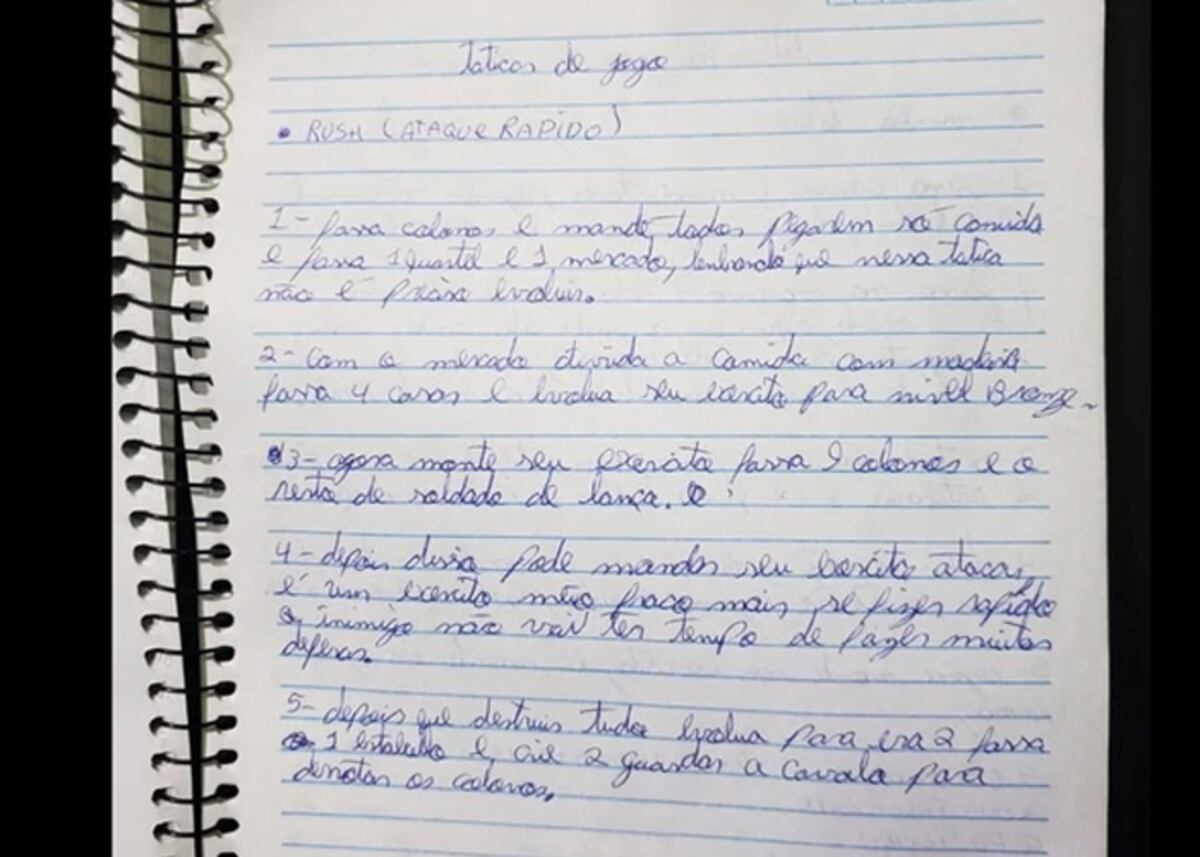 taticas de jogo
• RUSH (ATAQUE RAPIDO)
1- fassa colonos e mande todos pigarem só comida
e fassa 1 quartel e 1 mercado, lembrando que nessa tatica
não é presiso evoluir.
2- Com o mercado divida a comida com madeira
fassa 4 casas e evolua seu exercito para nivel Bronze.
3- agora monte seu exercito fassa 9 colonos e o
resto de soldado de lança.
4- depois disso pode mandar seu exercito atacar,
é um exercito meio fraco mais, se fizer rapido
o, inimigo não vai ter tempo de fazer muitas
defesas.
5- depois que destruir tudo evolua para era 2 fassa
1 estabulo e crie 2 guardas a cavalo para
derrotar os colonos.